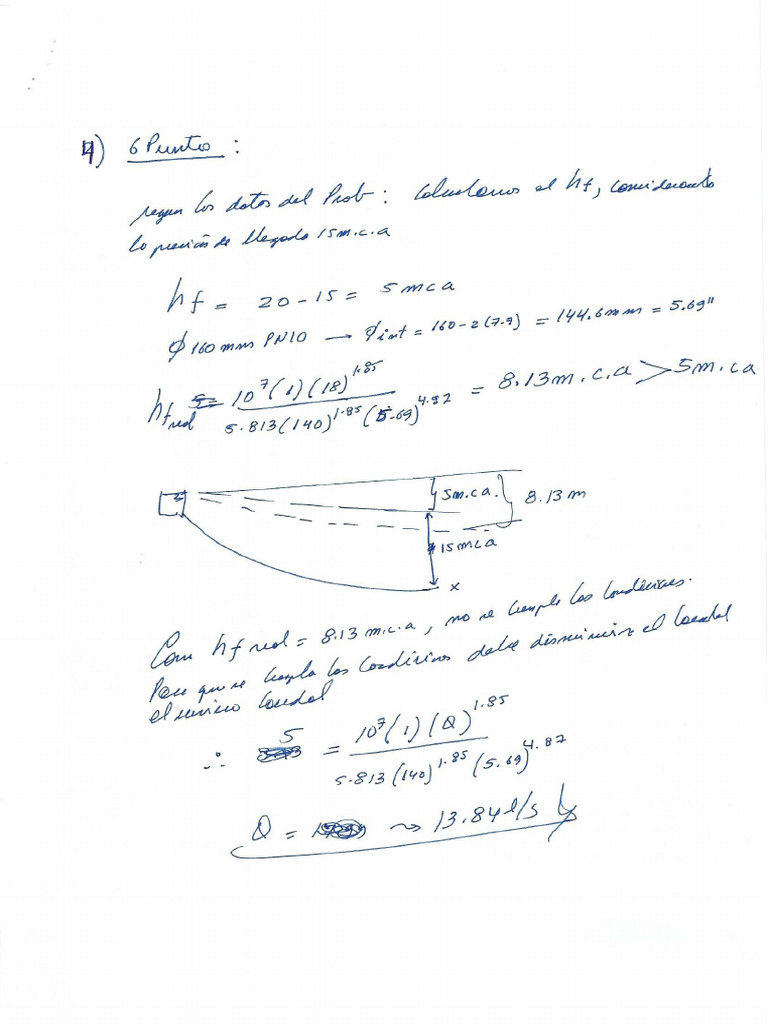 4) 6 Puntos :
segun los datos del Prob : Calculamos el hf, considerando
la presión de llegada 15m.c.a
hf = 20-15 = 5mca
ϕ 160mm PN10 → ϕint = 160-2(7.7) = 144.6mm = 5.69"
hf real = 10^7(1)(18)^1.85 / 5.813(140)^1.85(5.69)^4.87 = 8.13m.c.a > 5m.ca
5m.ca. 8.13m
15mca
x
Com hf real = 8.13 m.c.a, no se cumple las condiciones.
Para que se cumpla las condiciones debe disminuir el caudal
el mismo caudal
∴ 5 = 10^7(1)(Q)^1.85 / 5.813(140)^1.85(5.69)^4.87
Q = ~> 13.84 l/s